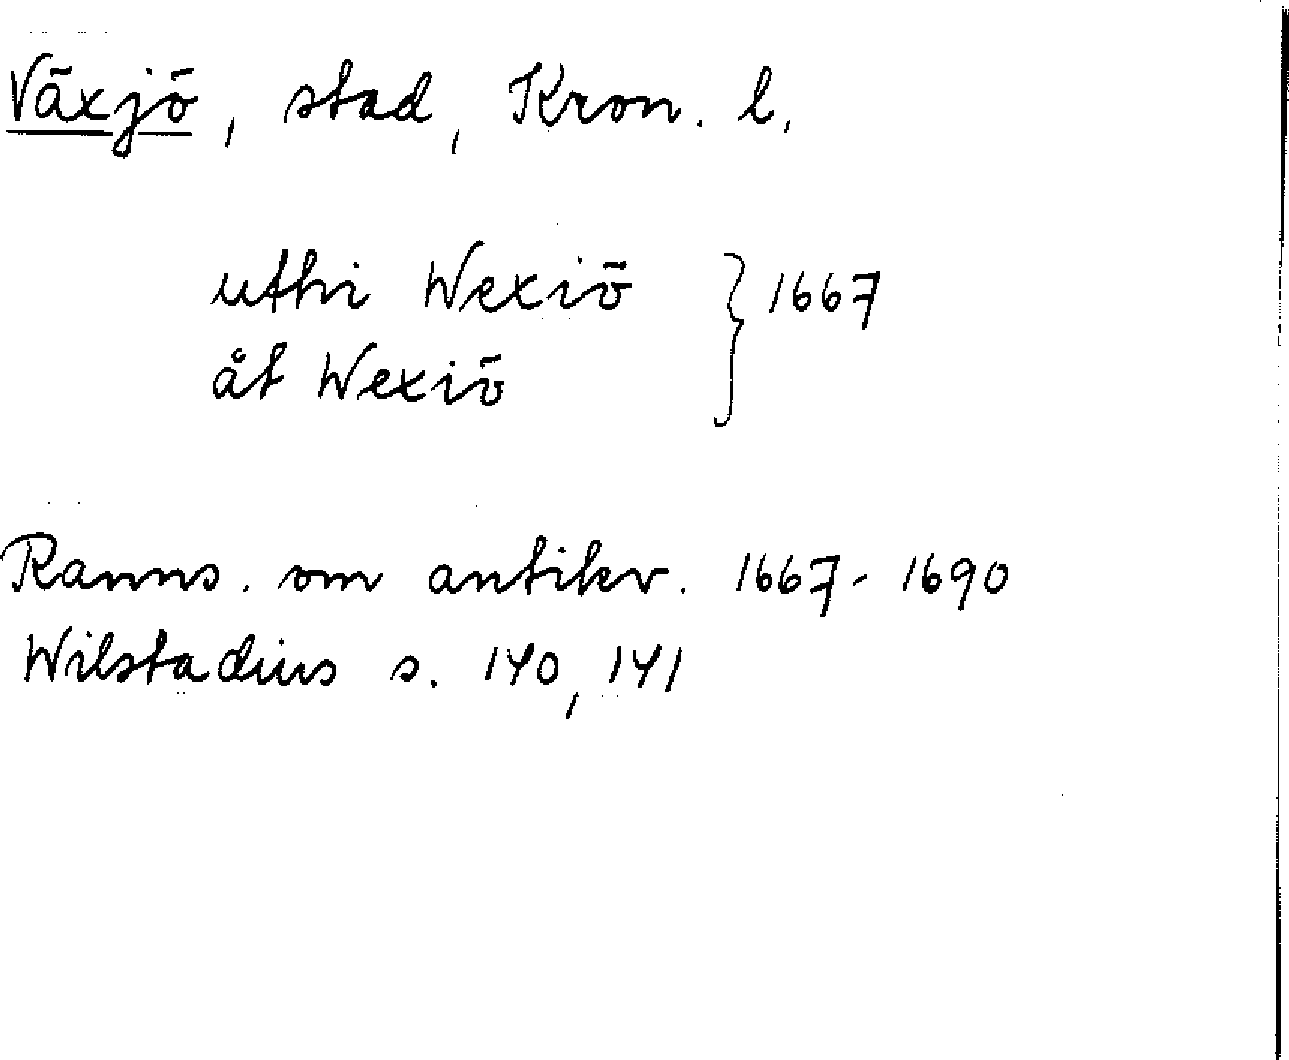 Växjö, stad, Kron. l.
uthi Wexiö } 1667
åt Wexiö
Ranns. om antikv. 1667-1690
Wilstadius s. 140, 141